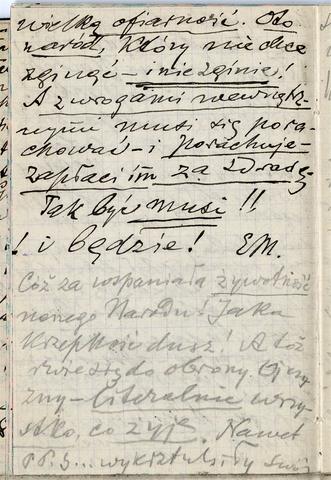 wielką ofiarność. Oto
naród, który nie chce
zginąć – i nie zginie!
A z wrogami wewnętrz-
nymi musi się pora-
chować – i porachuje –
zapłaci im za zdradę.
Tak być musi!!
! i będzie! EM.
Cóż za wspaniała żywotność
naszego Narodu! Jaka
Krzepkość dusz! A tóż
rwie się do obrony Ojczy
zny – literalnie wszy-
stko, co żyje. Nawet
P.P.S... wykształciły swój